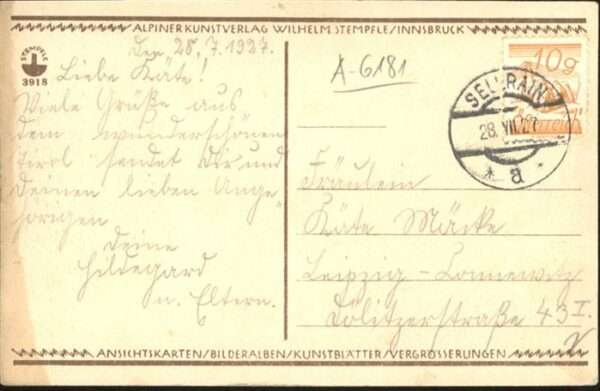 ALPINER KUNSTVERLAG WILHELM STEMPFLE/INNSBRUCK
STEMPFLE
3918
Den 28.7.1927.
Liebe Käte!
Viele Grüße aus
dem wunderschönen
Tirol sendet Dir und
Deinen lieben Ange-
hörigen
Deine
Hildegard
u. Eltern.
A-6181
10g
SELLRAIN
28.VII.27
* a *
Fräulein
Käte Mäcke
Leipzig-Connewitz
Dölitzerstraße 43 I.
ANSICHTSKARTEN/BILDERALBEN/KUNSTBLÄTTER/VERGRÖSSERUNGEN